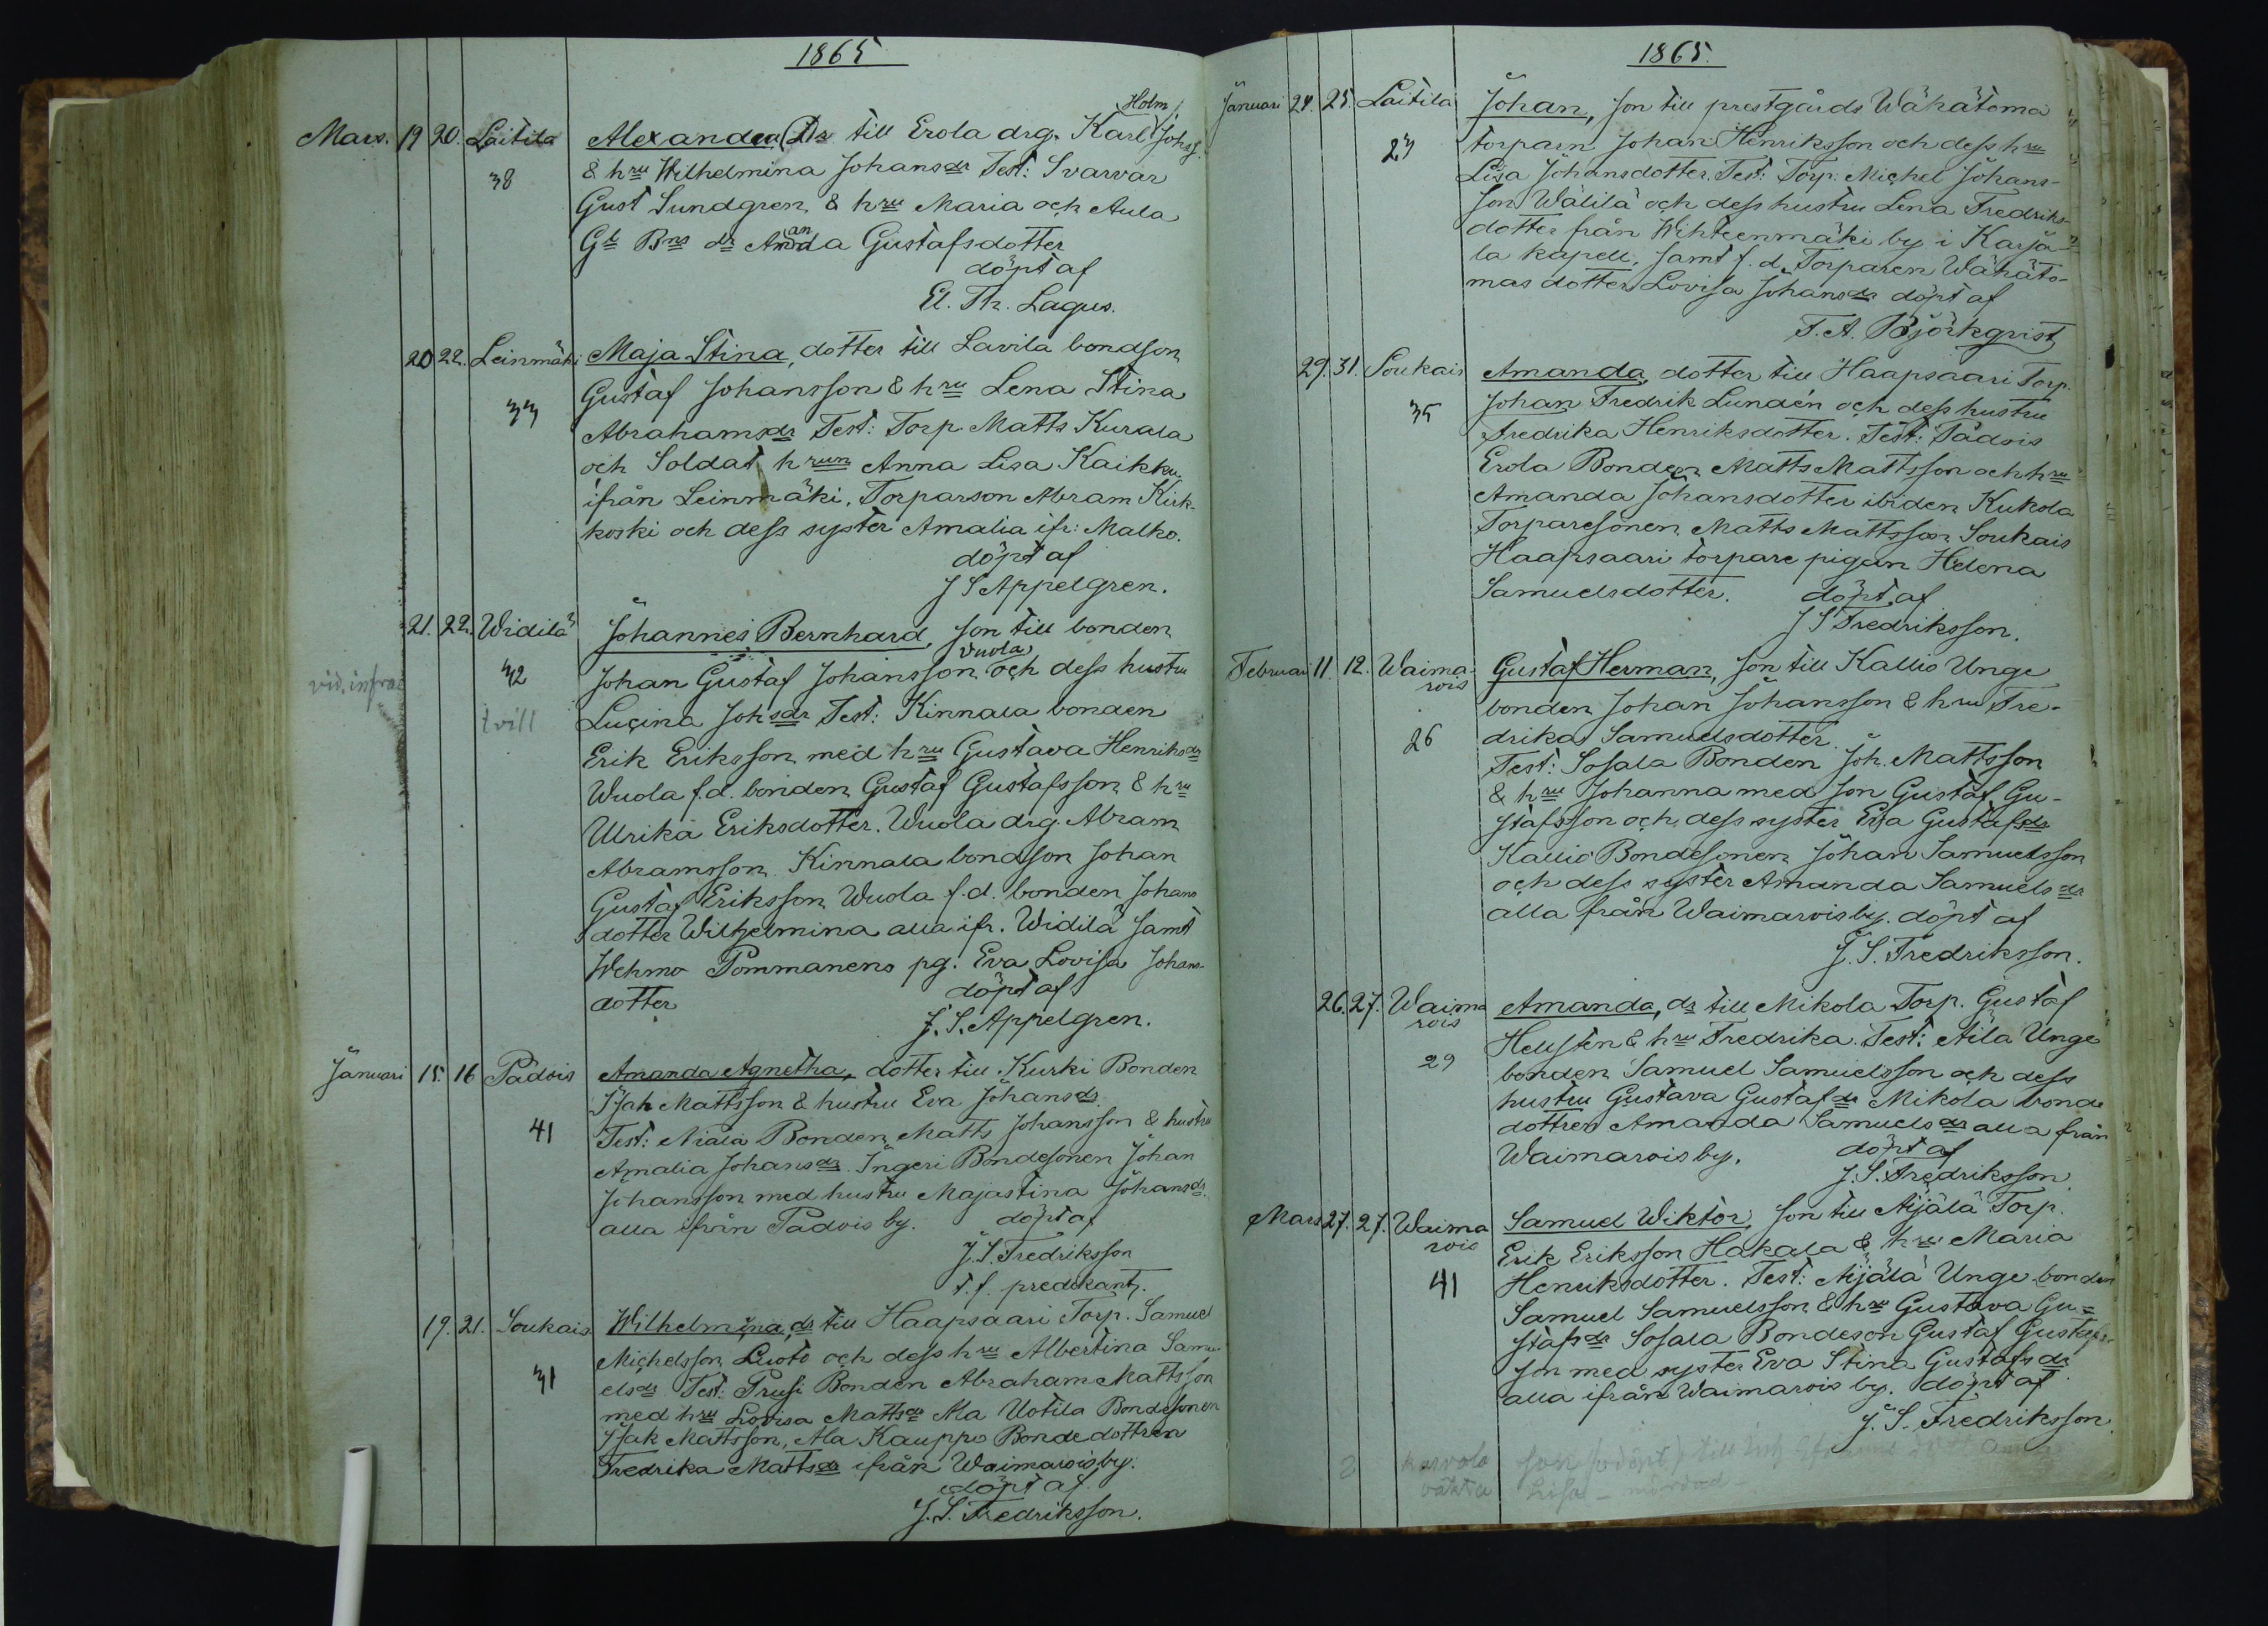 1865
Mars. 19 20. Laitila Alexandra, Dr till Erola drg. Karl Holm Johsf.
38 & hru Wilhelmina Johansdr Test: Svarvar
Gust Sundgren & hru Maria och Aula
Gl Bns dr Amanda Gustafsdotter
döpt af
El. Th. Lagus.
20 22. Leinmäki Maja Stina, dotter till Lavila bondson
33 Gustaf Johansson & hru Lena Stina
Abrahamsdr Test: Torp. Matts Kurala
och Soldat hrun Anna Lisa Kaikku
ifrån Leinmäki. Torparson Abram Kirk-
koski och dess syster Amalia ifr: Malko.
döpt af
J S Appelgren.
21. 22. Widilä Johannes Bernhard, son till bonden
vid. infra 32 Johan Gustaf Johansson Vuola och dess hustru
tvill Lucina Johsdr Test: Kinnala bonden
Erik Eriksson med hru Gustava Henriksdr
Wuola f.d. bonden Gustaf Gustafsson & hru
Ulrika Eriksdotter. Wuola drg. Abram
Abramsson Kinnala bondson Johan
Gustaf Eriksson Wuola f.d. bonden Johans
dotter Wilhelmina alla ifr. Widilä samt
Wehmo Pommanens pg. Eva Lovisa Johans-
dotter döpt af
J. S. Appelgren.
Januari 15. 16 Padois Amanda Agnetha, dotter till Kurki Bonden
Isak Mattsson & hustru Eva Johansdr.
41 Test: Niala Bonden Matts Johansson & hustru
Amalia Johansdr. Ingeri Bondesonen Johan
Johansson med hustru Majastina Johansdr.
alla ifrån Padois by. döpt af
J. S. Fredriksson
t.f. predikant.
19. 21. Soukais Wilhelmina, dr till Haapsaari Torp. Samuel
Michelsson Luoto och dess hru Albertina Samu-
31 elsdr Test: Prusi Bonden Abraham Mattsson
med hru Lovisa Mattsdr Ala Uotila Bondesonen
Isak Mattsson, Ala Kauppo Bondedottren
Fredrika Mattsdr ifrån Waimaroisby.
döpt af
J. S. Fredriksson.
1865.
Januari 24. 25. Laitila Johan, son till prestgårds Wähätoma
23 torparn Johan Henriksson och dess hru
Lisa Johansdotter. Test: Torp. Michel Johans-
son Wälilä och dess hustru Lena Fredriks-
dotter från Wehteenmäki by i Karja-
la kapell, samt f. d. Torparen Wähäto-
mas dotter Lovisa Johansdr döpt af
F. A. Björkqvist
29. 31. Soukais Amanda, dotter till Haapsaari Torp.
35 Johan Fredrik Lundén och dess hustru
Fredrika Henriksdotter. Test: Padois
Erola Bonden Matts Mattsson och hru
Amanda Johansdotter ibidem Kukola
Torparesonen Matts Mattsson Soukais
Haapsaari torpare pigan Helena
Samuelsdotter. döpt af
J S Fredriksson.
Februari 11. 12. Waima- Gustaf Herman, son till Kallio Unge
rois bonden Johan Johansson & hru Fre-
26 drika Samuelsdotter.
Test: Sosala Bonden Joh. Mattsson
& hru Johanna med son Gustaf Gu-
stafsson och dess syster Eva Gustafsdr
Kallio Bondesonen Johan Samuelsson
och dess syster Amanda Samuelsdr
alla från Waimaroisby. döpt af
J. S. Fredriksson.
26. 27. Waima Amanda, dr till Mikola Torp. Gustaf
rois Hellsten & hru Fredrika. Test: Äilä Unge
29 bonden Samuel Samuelsson och dess
hustru Gustava Gustafdr Mikola bonde
dottren Amanda Samuelsdr alla från
Waimarois by. döpt af
J. S. Fredriksson.
Mars 27. 27. Waima Samuel Wiktor, son till Äijälä Torp.
rois Erik Eriksson Hakala & hru Maria
41 Henriksdotter. Test: Äijälä Unge bonden
Samuel Samuelsson & hru Gustava Gu=
stafsdr Sosala Bondeson Gustaf Gustafs-
son med syster Eva Stina Gustafsdr
alla ifrån Waimarois by. döpt af
J. S. Fredriksson.
2 son (odöpt) till
Lisa - mördad